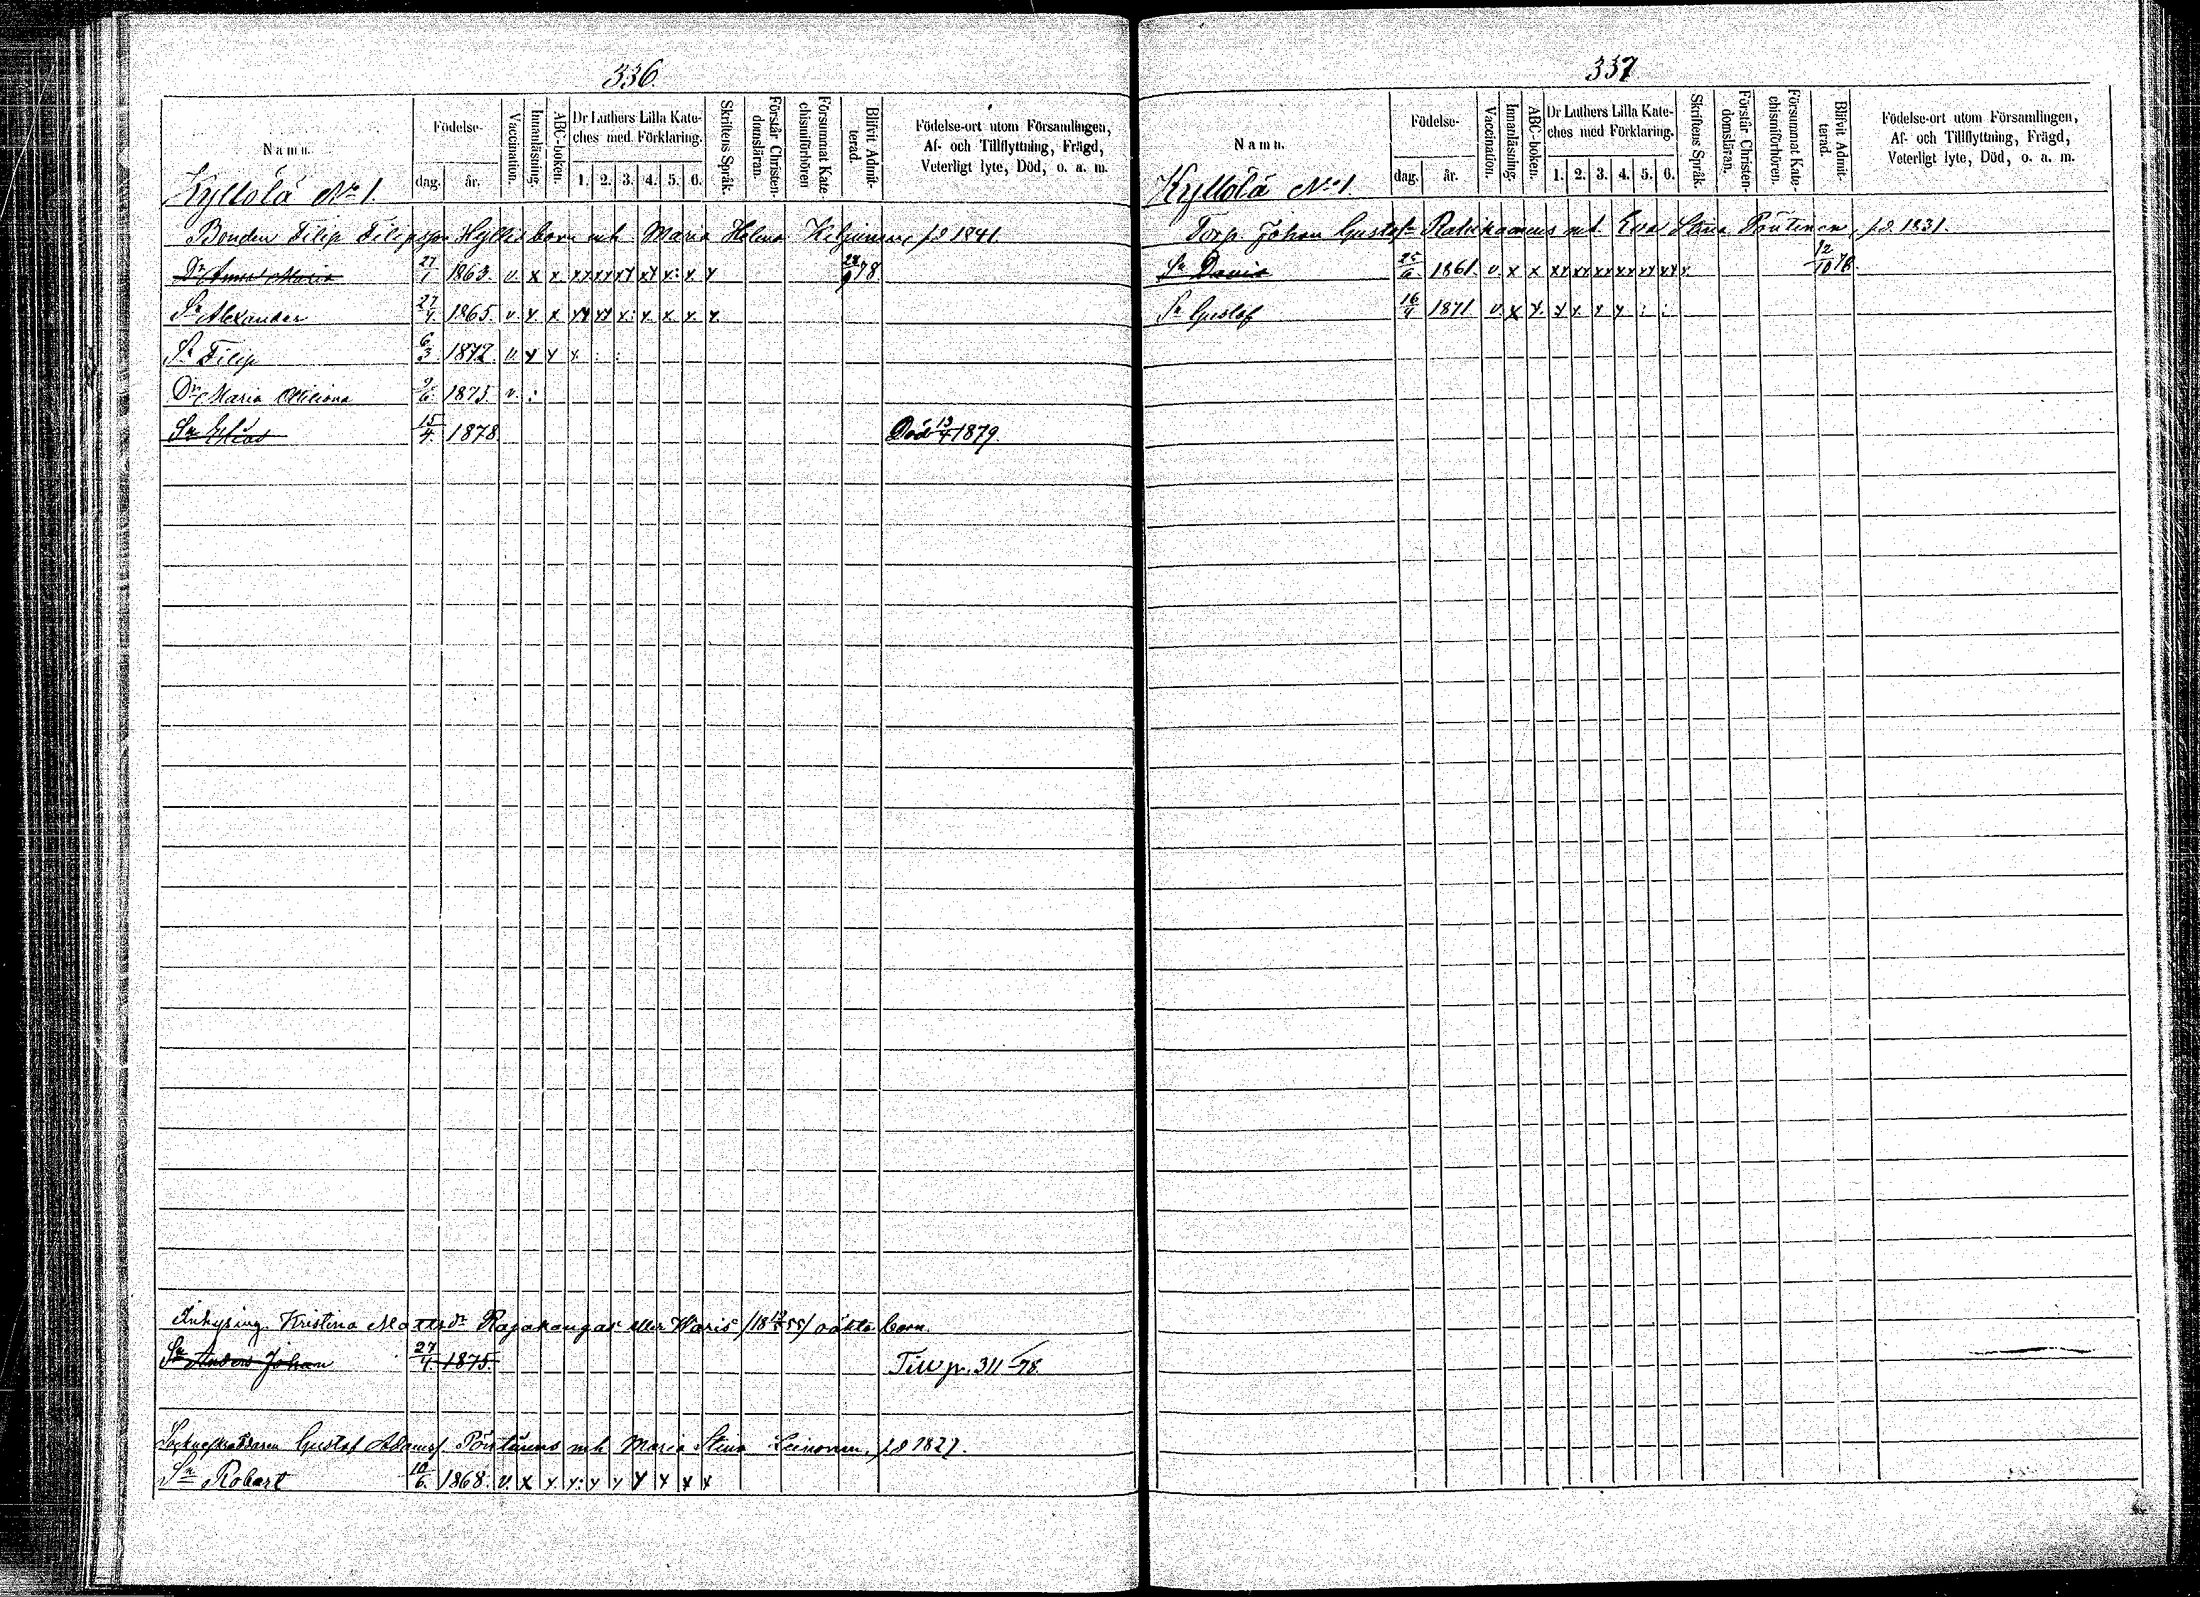 336.
Namn.
Födelse-
dag.
år.
Vaccination.
Innanläsning.
ABC-boken.
Dr Luthers Lilla Kate-
ches med. Förklaring.
1. 2. 3. 4. 5. 6.
Skriftens Språk.
Förstår Christen-
domsläran.
Försummat Kate-
chismiförhören
Blifvit Admit-
terad.
Födelse-ort utom Församlingen,
Af- och Tillflyttning, Frägd,
Veterligt lyte, Död, o. a. m.
Kyllölä No 1.
Bonden Filip Filipsson Hyllis barn mh. Maria Helena f.d 1841.
Dr Anna Maria 27/1 1863. v. x x. xx xx xx xx x: x. x 24/9 78
Sn Alexander 27/4. 1865. v. x. x xx xx x: x. x. x. x.
Sn Filip 6/3 1872. v. x x x. : :
Dr Maria 9/6 1875 v. :
Sn Elias 15/4 1878 Död 13/4 1879.
Inhysing. Kristina Mattsdr Rajakangas eller Waris oäkta barn.
Sn Anders Johan 27/4. 1875. Till p. 311 /78.
Gustaf Adamsf. mh Maria Stina Leinonen, f.d 1827.
Sn Robert 10/6. 1868. v. x x. x: x x x x x x
337
Namn.
Födelse-
dag.
år.
Vaccination.
Innanläsning.
ABC-boken.
Dr Luthers Lilla Kate-
ches med Förklaring.
1. 2. 3. 4. 5. 6.
Skriftens Språk.
Förstår Christen-
domsläran.
Försummat Kate-
chismiförhören.
Blifvit Admit-
terad.
Födelse-ort utom Församlingen,
Af- och Tillflyttning, Frägd,
Veterligt lyte, Död, o. a. m.
Kyllölä No 1.
Torp. Johan Gustaf mh. Eva Stina f.d. 1831.
Sn David 25/6 1861. v. x x xx xx xx xx xx xx x. 12/10 78
Sn Gustaf 16/4 1871 v. x x. x x. x x : :